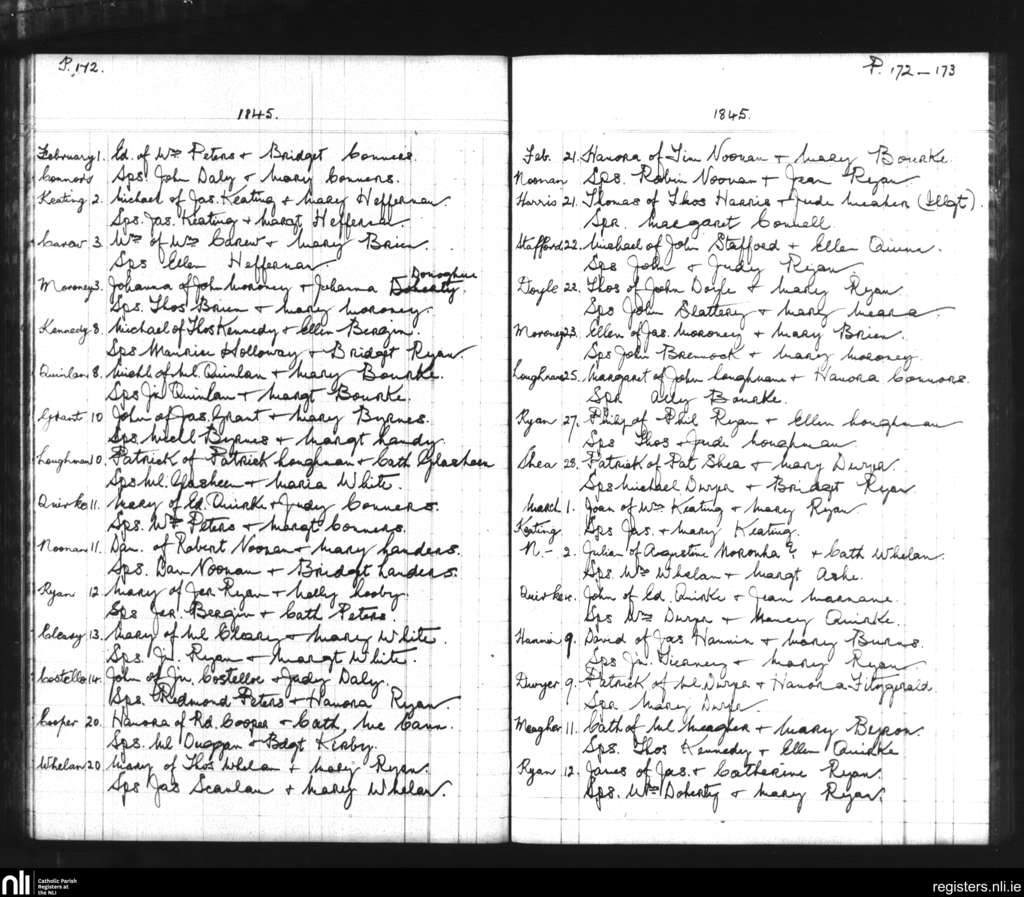 P. 172.
1845.
February 1. Ed. of Wm Peters + Bridget Connors.
Connors Sps. John Daly + Mary Connors.
Keating 2. Michael of Jas. Keating + Mary Heffernan.
Sps. Jas. Keating + Margt Heffernan
Carew 3. Wm of Wm Carew + Mary Brien
Sps Ellen Heffernan.
Donoghue
Moroney 3. Johanna of John Moroney + Johanna Doherty.
Sps. Thos Brien + Mary Moroney.
Kennedy 8. Michael of Thos Kennedy + Ellen Bergin.
Sps Maurice Holloway + Bridget Ryan.
Quinlan 8. Michl of Ml Quinlan + Mary Bourke.
Sps Jn Quinlan + Margt Bourke.
Grant 10 John of Jas. Grant + Mary Byrnes.
Sps. Michl Byrnes + Margt Landy.
Loughman 10. Patrick of Patrick Loughman + Cath Glasheen
Sps Ml. Glasheen + Maria White.
Quirke 11. Mary of Ed. Quirke + Judy Connors.
Sps. Wm Peters + Margt Connors.
Noonan 11. Dan. of Robert Noonan + Mary Landers.
Sps. Dan Noonan + Bridget Landers.
Ryan 12. Mary of Jer Ryan + Nelly Looby.
Sps Jer Bergin + Cath Peters.
Cleary 13. Mary of Ml Cleary + Mary White.
Sps. Jn. Ryan + Margt White.
Costelloe 14. John of Jn. Costelloe + Judy Daly.
Sps. Redmond Peters + Hanora Ryan.
Cooper 20. Hanora of Rd. Cooper + Cath. Mc Cann.
Sps. Ml Duggan + Bdgt Kirby.
Whelan 20. Mary of Thos Whelan + Mary Ryan.
Sps Jas Scanlan + Mary Whelan.
P. 172 – 173
1845.
Feb. 21. Hanora of Tim Noonan + Mary Bourke.
Noonan Sps. Robin Noonan + Jean Ryan.
Harris 21. Thomas of Thos Harris + Jude Meaher (Illgt).
Spr. Margaret Connell
Stafford 22. Michael of John Stafford + Ellen Quinn.
Sps John + Judy Ryan
Doyle 22. Thos of John Doyle + Mary Ryan
Sps John Slattery + Mary Meara.
Moroney 23. Ellen of Jas. Moroney + Mary Brien.
Sps John Bremock + Mary Moroney.
Loughnane 25. Margaret of John Loughnane + Hanora Connors.
Spr. Ally Bourke.
Ryan 27. Philip of Phil Ryan + Ellen Loughman
Sps Thos + Jude Loughman.
Shea 28. Patrick of Pat Shea + Mary Dwyer.
Sps Michael Dwyer + Bridget Ryan
March 1. Joan of Wm Keating + Mary Ryan
Keating Sps Jas. + Mary Keating.
N.– 2. Julian of Augustine Noronha ? + Cath Whelan.
Sps. Wm Whelan + Margt Ashe.
Quirke John of Ed. Quirke + Jean
Sps Wm Dwyer + Nancy Quirke.
Hannin 9. David of Jas Hannin + Mary Burns.
Sps Jn. Tierney + Mary Ryan
Dwyer 9. Patrick of Ml. Dwyer + Hanora Fitzgerald.
Spr Mary Dwyer.
Meagher 11. Cath of Ml Meagher + Mary Byron.
Sps. Thos Kennedy + Ellen Quirke
Ryan 12. James of Jas. + Catherine Ryan.
Sps. Wm Doherty + Mary Ryan.
nli Catholic Parish Registers at the NLI
registers.nli.ie